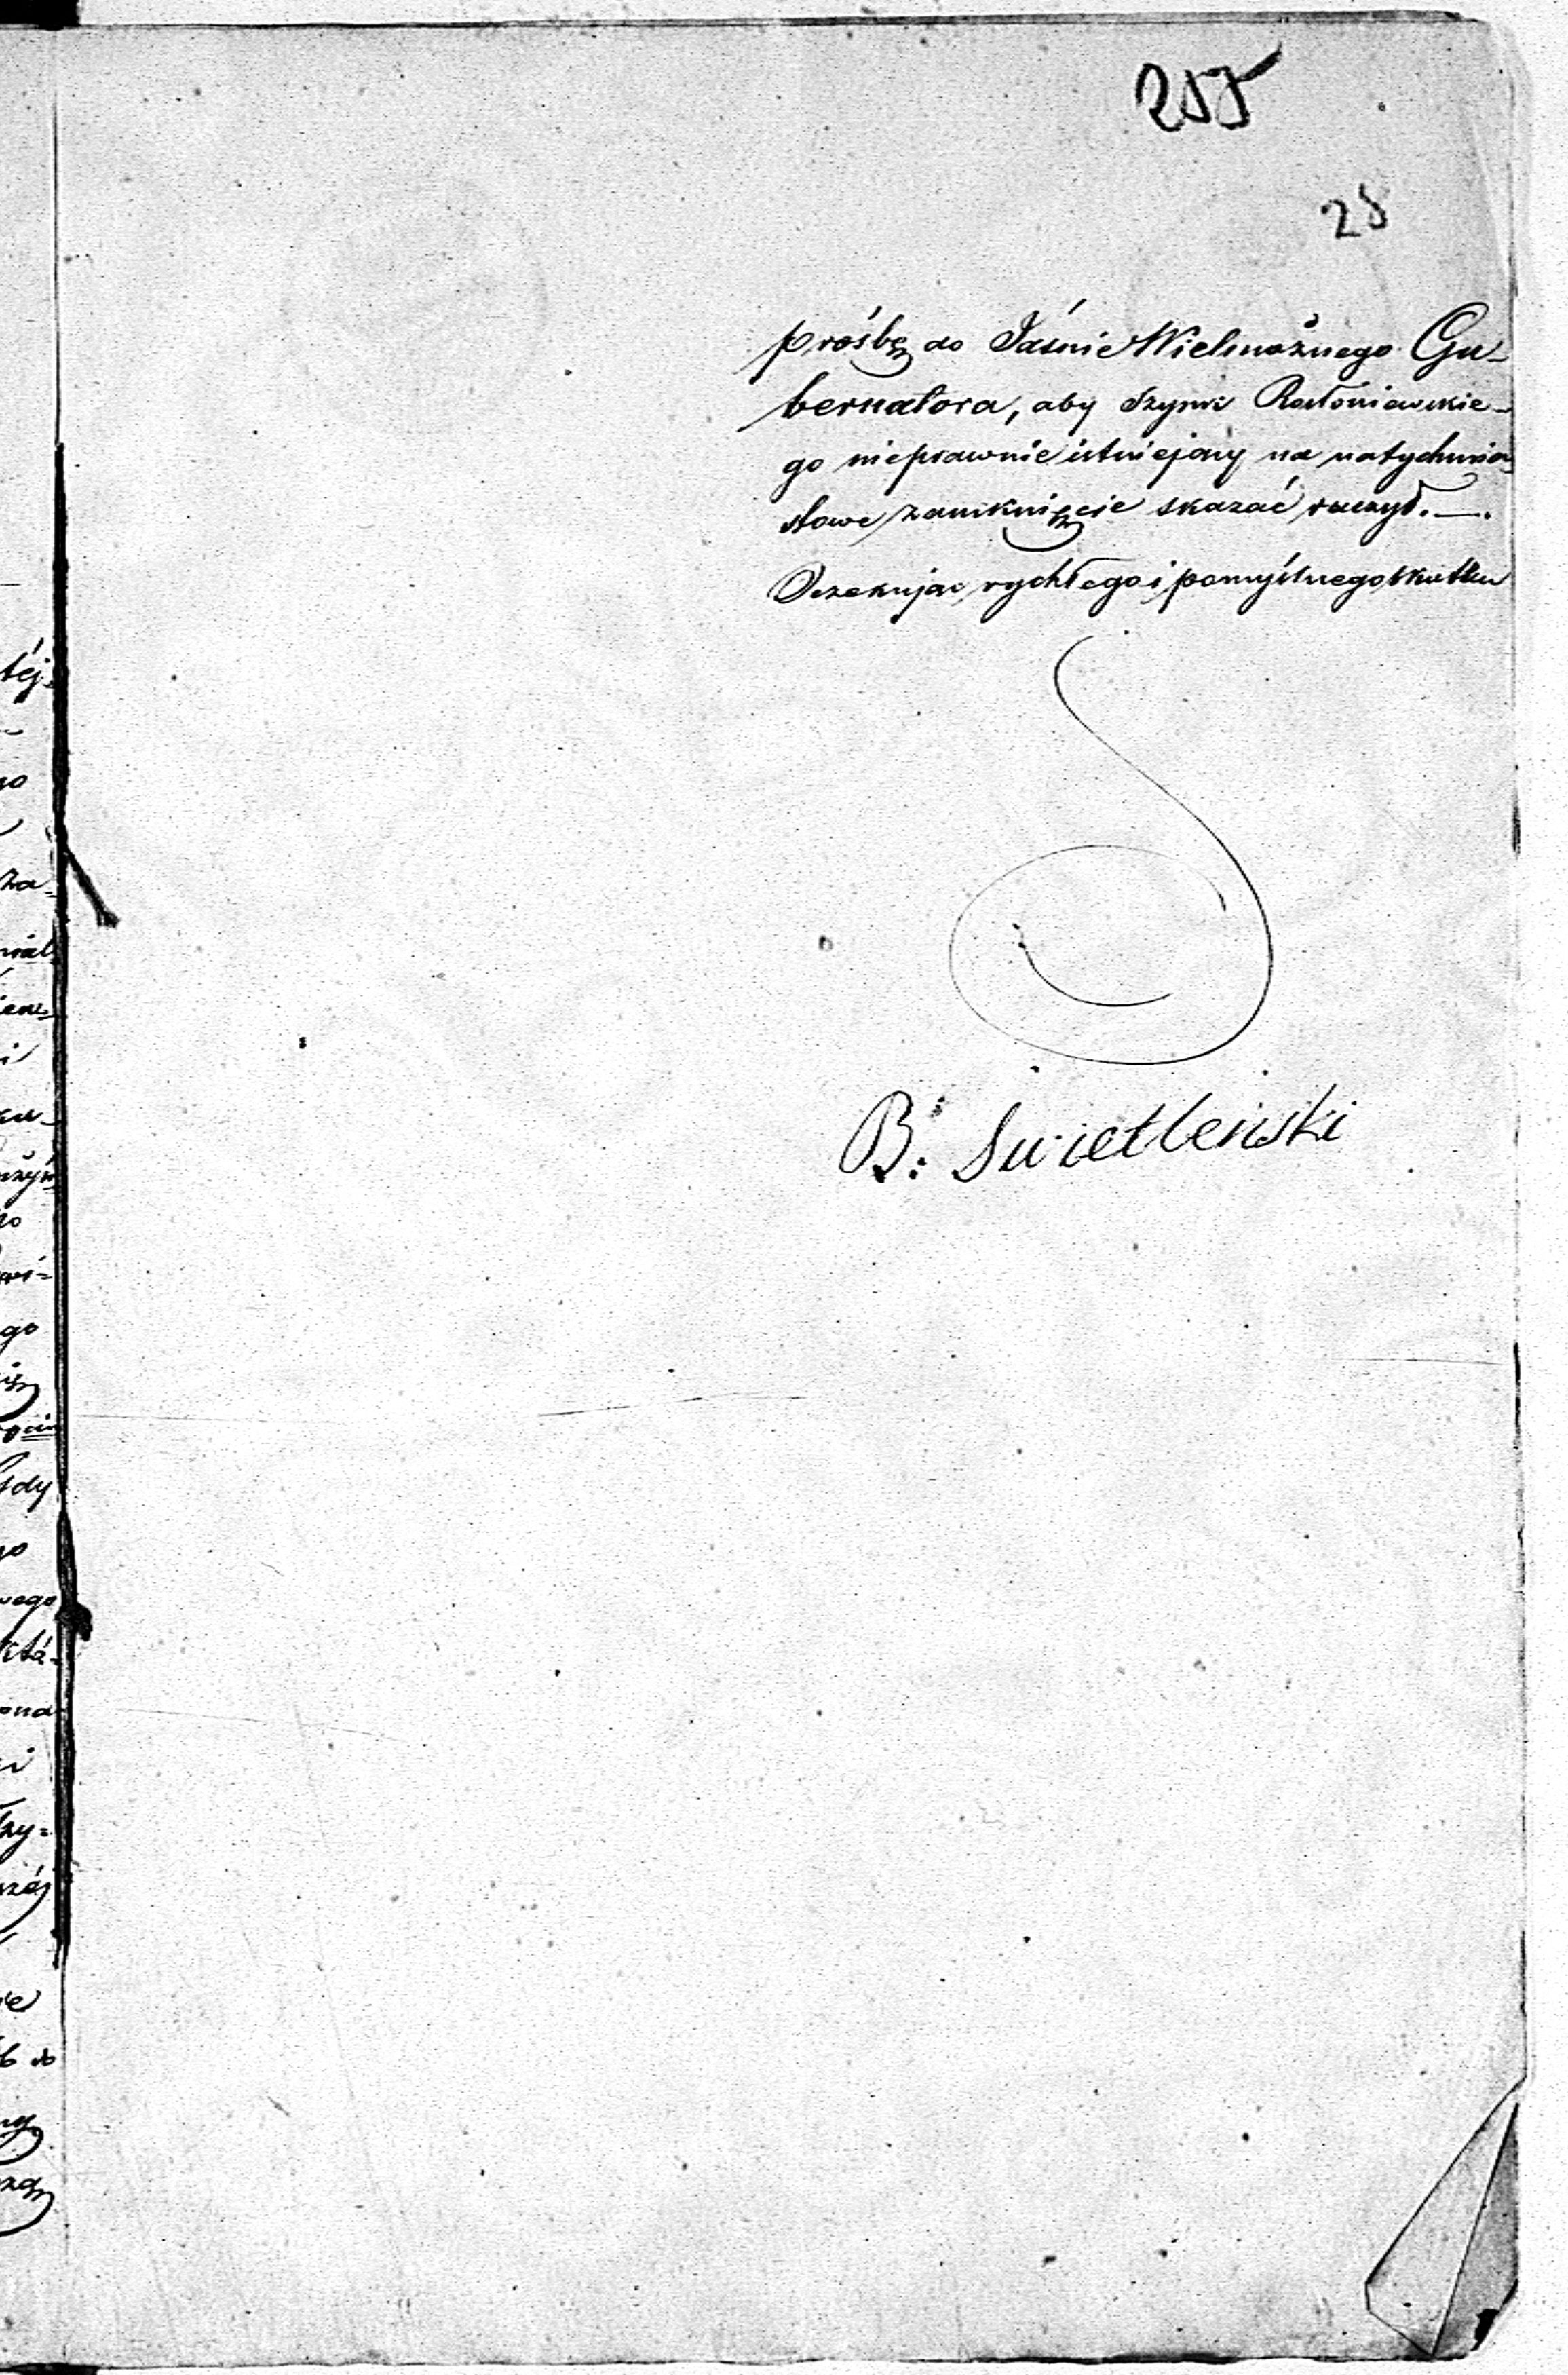 255
28
prośbę do Jaśnie Wielmożnego Gu-
bernatora, aby Szynk Radoniewskie-
go nieprawnie istniejący na natychmia
stowe zamknięcie skazać raczył. —.
Oczekując rychłego i pomyślnego skutku
B: Swietlenski
téj
no
za-
ku-
go
Gdy
wego
ona
rzy=
széj